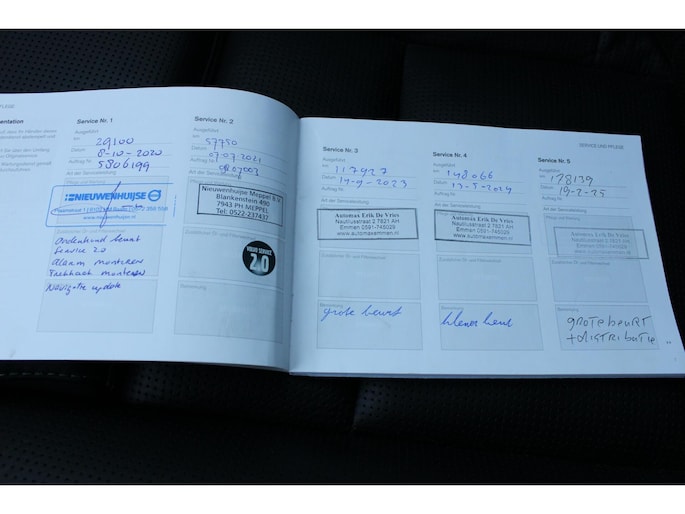 Service Nr. 1
Ausgeführt
km
29100
Datum 8-10-2020
Auftrag Nr. 5806199
NIEUWENHUIJSE
onderhoud beurt
Service 2.0
alarm monteren
Trekhaak monteren
Navigatie update
Service Nr. 2
Ausgeführt
km
57750
Datum 07.07.2021
Auftrag Nr.
Art der Serviceleistung
Nieuwenhuijse Meppel B.V.
Blankenstein 490
7943 PH MEPPEL
Tel: 0522-237437
VOLVO SERVICE
2.0
Bemerkung
SERVICE UND PFLEGE
Service Nr. 3
Ausgeführt
km
117927
Datum 19-9-2023
Auftrag Nr.
Art der Serviceleistung
Automax Erik De Vries
Nautilusstraat 2 7821 AH
Emmen 0591-745029
www.automaxemmen.nl
Bemerkung
grote beurt
Service Nr. 4
Ausgeführt
km
148066
Datum 13-5-2024
Auftrag Nr.
Art der Serviceleistung
Automax Erik De Vries
Nautilusstraat 2 7821 AH
Emmen 0591-745029
www.automaxemmen.nl
Bemerkung
kleine beurt
Service Nr. 5
Ausgeführt
km
178139
Datum 19-2-25
Auftrag Nr.
Art der Serviceleistung
Automax Erik De Vries
Nautilusstraat 2 7821 AH
Emmen 0591-745029
www.automaxemmen.nl
Bemerkung
grote beurt
+ distributie